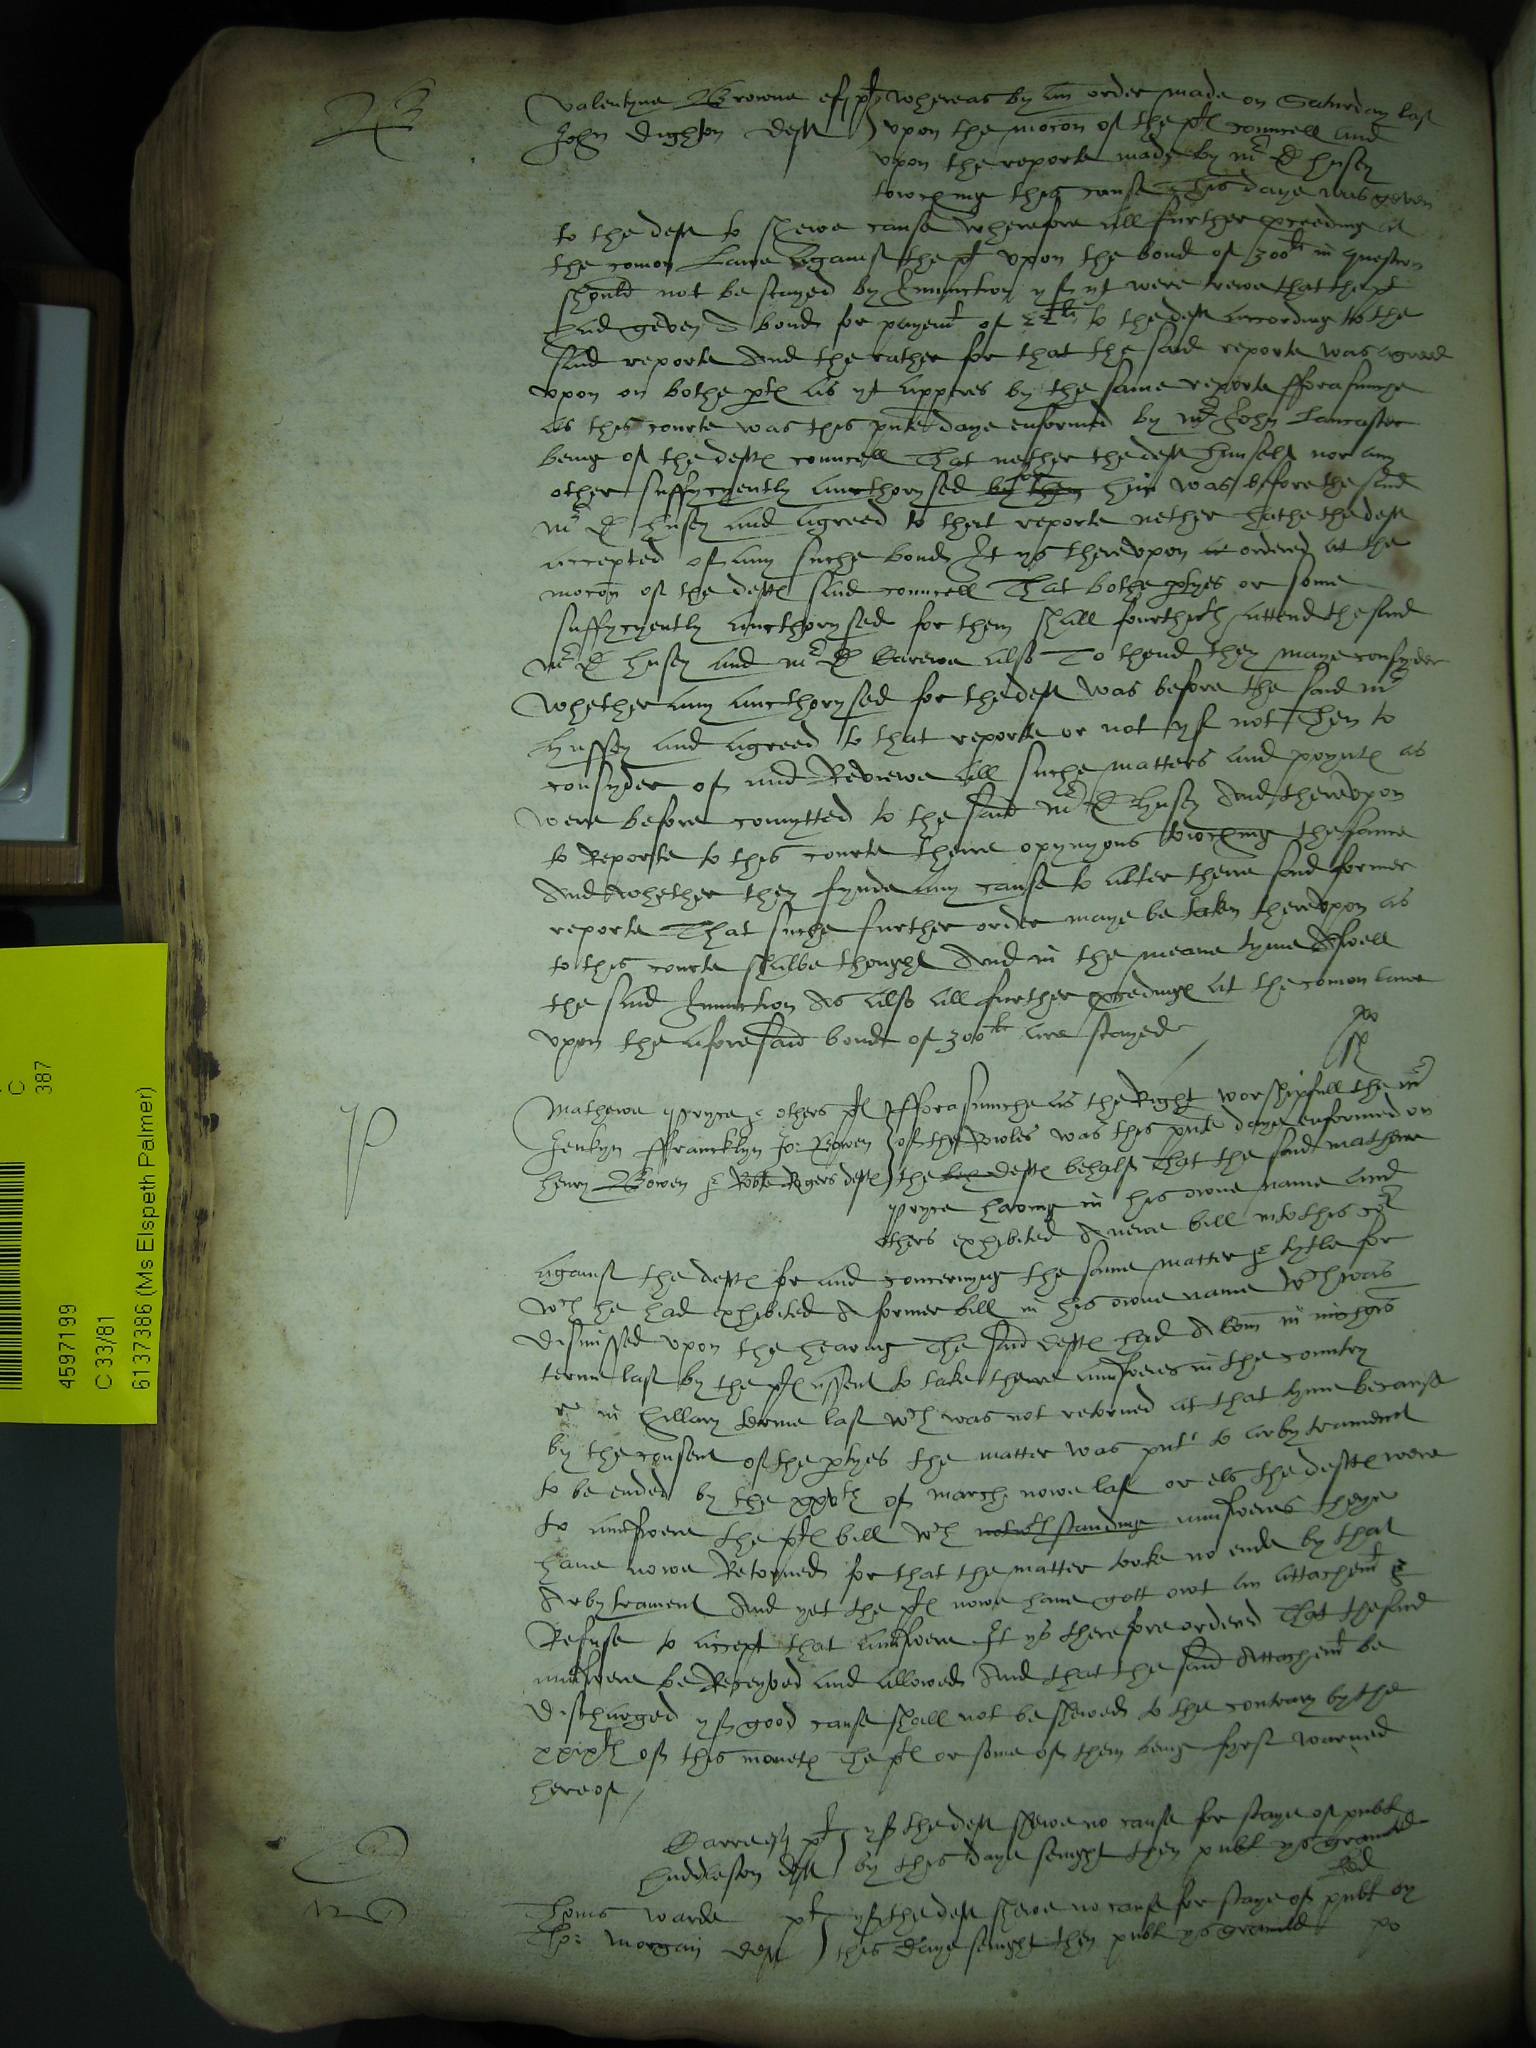 B
Valentyne Browne esq pt whereas by an order made on Saturday last
John Dighton deft upon the mocon of the ptes councell and
upon the reporte made by mr D Husey
towching this cause This daye was geven
to the deft to shewe cause wherefore all further proceeding at
the comon Lawe against the pt upon the bond of 300li in question
should not be stayed by Iniunction yf yt were trewe that the pt
had geven A bond for payemt of li to the deft according to the
said reporte And the rather for that the said reporte was agreed
upon on bothe ptes as yt apperes by the same reporte fforasmuche
as this courte was this pnte daye enformed by mr John Lancaster
being of the deftes councell That nether the deft himself nor any
other suffycyently aucthorysed by then for him was before the said
mr D Husey and agreed to that reporte nether hathe the deft
accepted of any suche bond It ys thereupon at ordered at the
mocon of the deftes said councell That bothe ptyes or some
suffycyently aucthorysed for them shall fourthwth attend the said
mr D Husey and mr D Carewe also To thend they maye consyder
whether any aucthorysed for the deft was before the said mr
Hussey and agreed to that reporte or not yf not Then to
consyder of and Reviewe all suche matters and poyntes as
were before comytted to the said mr D Husey And thereupon
to Reporte to this courte theire opynyons towching the same
And whether they fynde any cause to alter theire said former
reporte That suche further order maye be taken thereupon as
to this courte shalbe thought And in the meane tyme Aswell
the said Iniunction As also all further proceedinges at the comon lawe
upon the aforesaid bond of 300li are stayed
P
Mathewe Pryce & others ptes fforasmuche as the Right worshipfull the mr
Jenkyn ffrancklyn Jo: Bowen of the Rowles was this pnte daye enformed on
Henry Bowen & Robte Rogers deftes the beh deftes behalf That the said mathewe
Pryce having in his owne name and
others exhibited A newe bill into this cort
against the deftes for and concernyng the same matter & tytle for
wch he had exhibited A former bill in his owne name wch was
dismissed upon the hearing The said deftes had A Com in michis
terme last by the ptes assent to take theire aunsweres in the country
re in Hillary terme last wch was not retorned at that tyme because
by the consent of the ptyes the matter was put to arbytrament
to be ended by the xxvth of march nowe last or els the deftes were
to aunswere the ptes bill wch notwthstanding aunsweres theye
have nowe Retorned for that the matter tooke no ende by that
Arbytrament And yet the ptes nowe have gott owt an attachemt &
Refuse to accept that aunswere It ys therefore ordered That the said
aunswere be Receyved and allowed And that the said Attachemt be
discharged yf good cause shall not be shewed to the contrary by the
xxixth of this moneth The ptes or some of them being fyrst warned
hereof
C
Carre esq pt yf the deft shewe no cause for staye of publ
Huddleston deft by this daye senight then publ ys graunted
W
Thoms Warde pt yf the deft shewe no cause for staye of publ by
Tho: Morgan deft this daye senight then publ ys graunted
4597199
C 33/81
6137386 (Ms Elspeth Palmer)
C
387